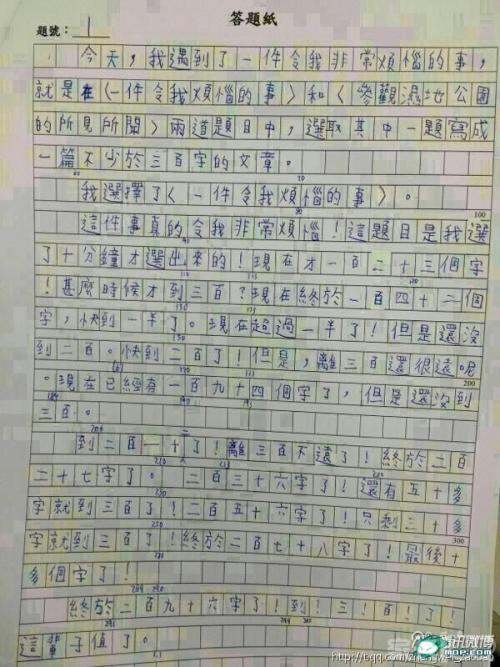 答題紙
題號：1
今天，我遇到了一件令我非常煩惱的事，
就是在〈一件令我煩惱的事〉和〈參觀濕地公園
的所見所聞〉兩道題目中，選取其中一題寫成
一篇不少於三百字的文章。
我選擇了〈一件令我煩惱的事〉。
100
這件事真的令我非常煩惱！這題目是我選
了十分鐘才選出來的！現在才一百二十三個字
！甚麼時候才到三百？現在終於一百四十二個
字，快到一半了。現在超過一半了！但是還沒
到二百。快到二百了！但是，離三百還很遠呢
200
。現在已經有一百九十四個字了，但是還沒到
三百。
到二百一十了！離三百不遠了！終於二百
二十七字了。二百三十六字了！還有五十多
字就到三百了！二百五十六字了！只剩三十多
300
字就到三百了！終於二百七十八字了！最後十
多個字了！
終於二百九十六字了！到！三！百！了！
這輩子值了。
腾讯微博
MOP.COM